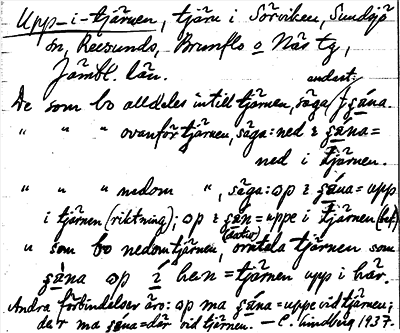 Upp-i-tjärnen, tjärn i Sörviken, Sundsjö
sn, Revsunds, Brunflo o Näs tg,
Jämtl. län.
endast:
De som bo alldeles intill tjärnen, säga: šäna.
" " " ovanför tjärnen, säga: ned i šäna =
ned i tjärnen.
" " " nedom ", säga: op i šäna = upp
i tjärnen (riktning); op i šän = uppe i tjärnen (bef)
" som bo nedom tjärnen, omtala tjärnen som
šäna op i hen = tjärnen upp i här.
Andra förbindelser äro: op ma šäna = uppe vid tjärnen;
der ma šäna = där vid tjärnen. — E. Lindberg 1937.